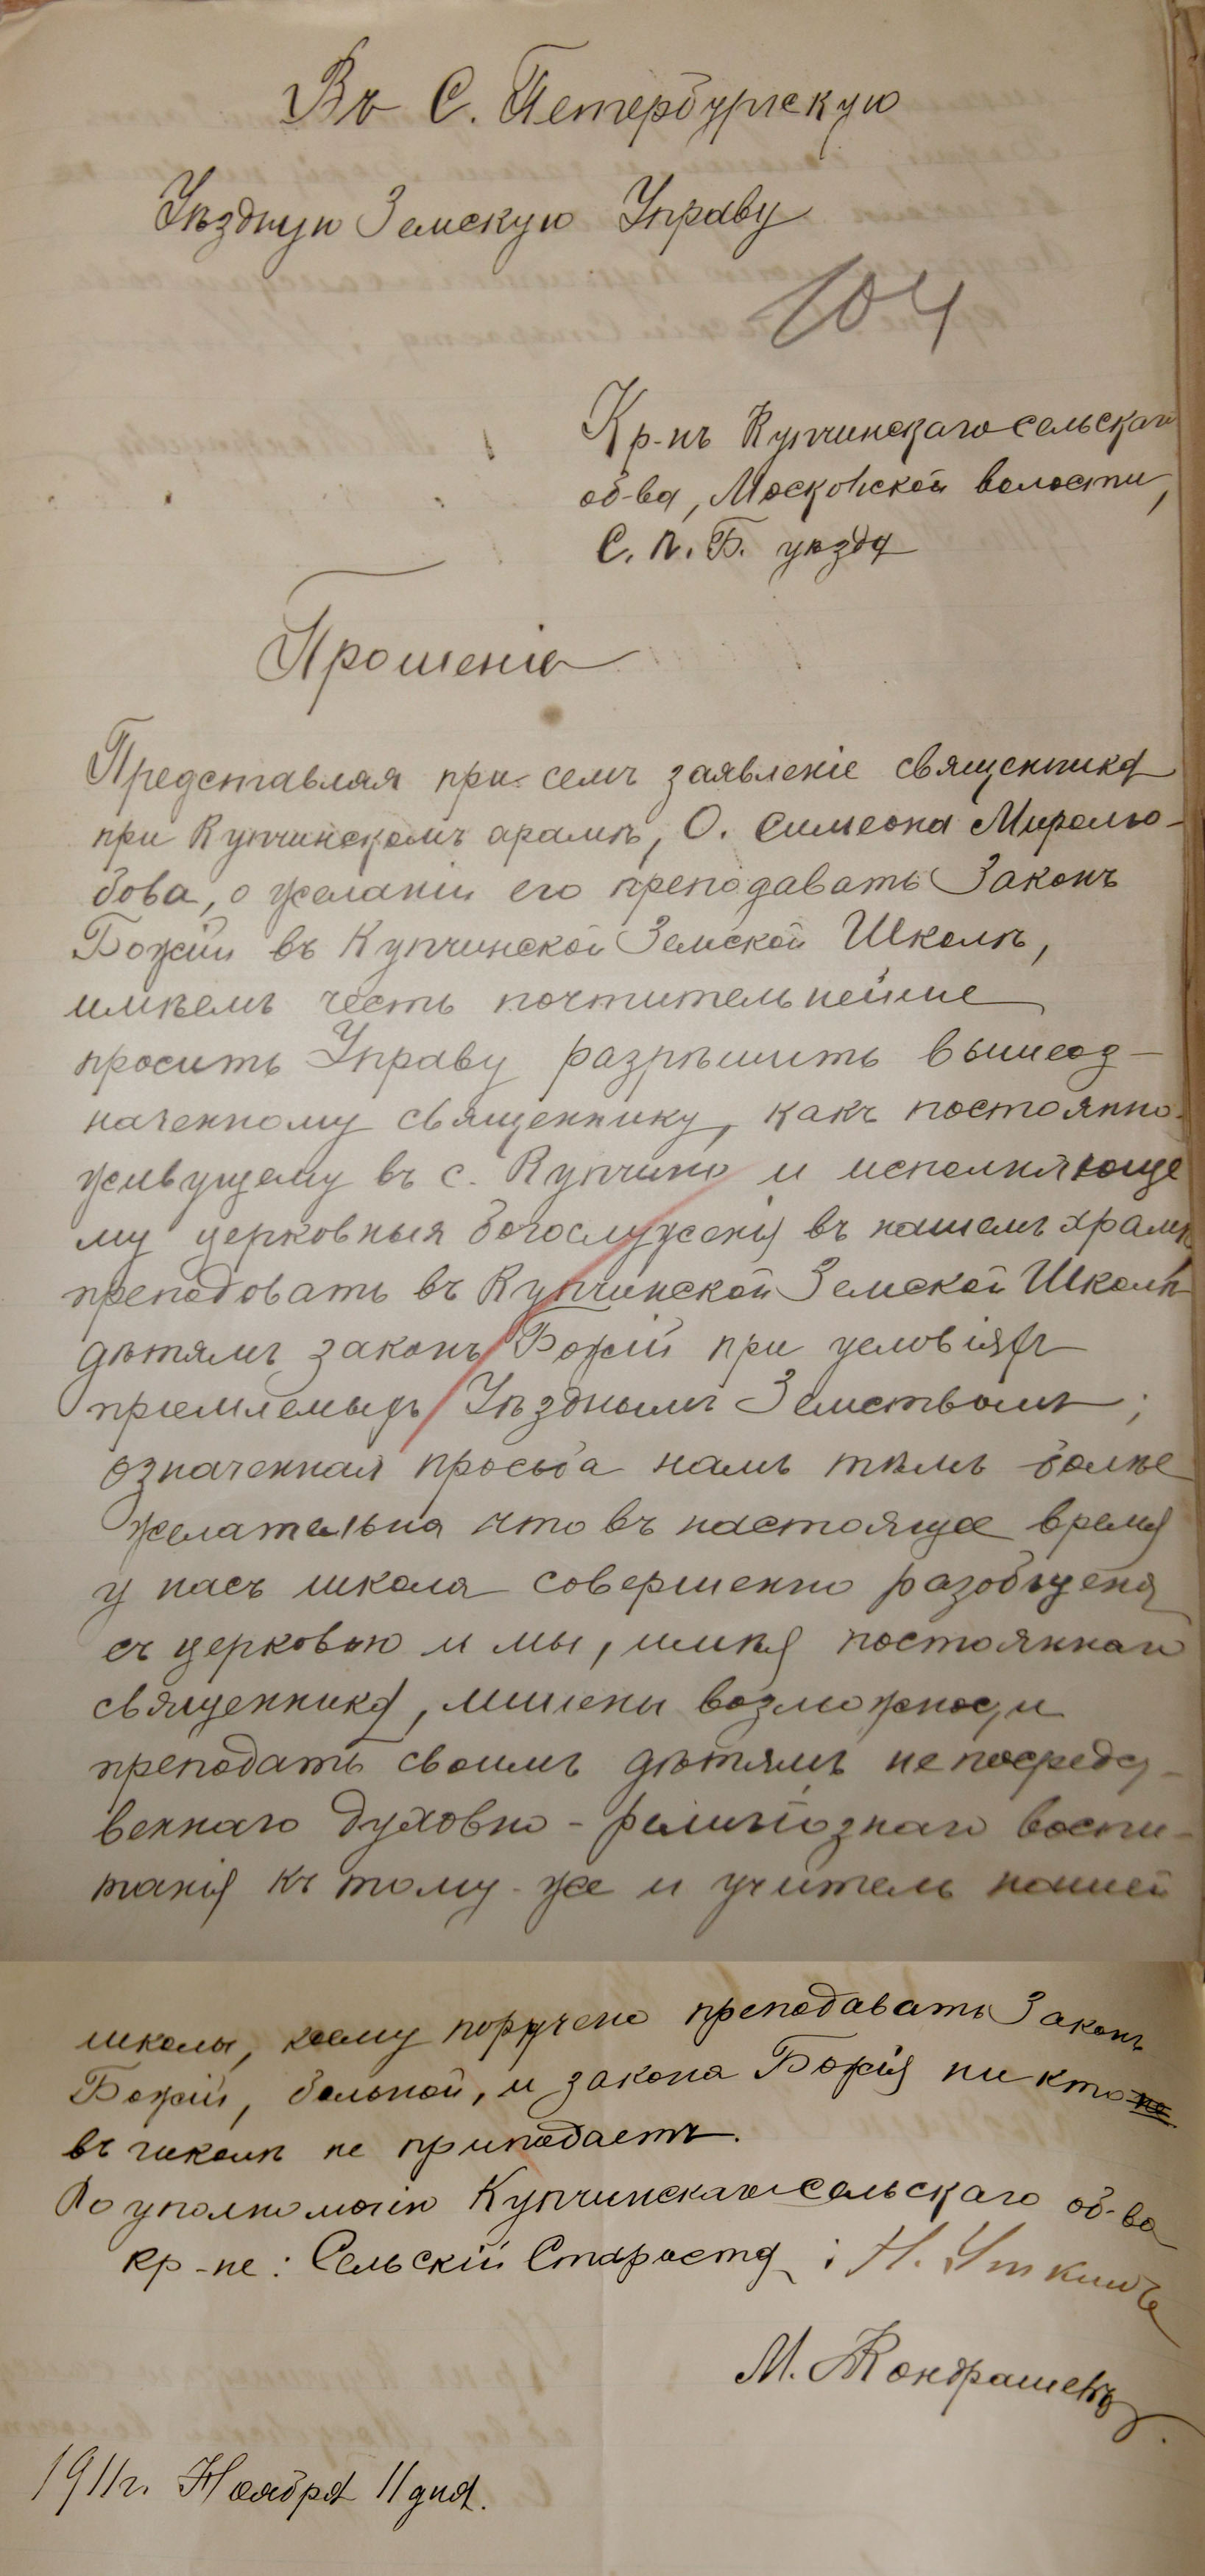 Въ С. Петербургскую
Уѣздную Земскую Управу
104
Кр-нъ Купчинскаго сельскаго
об-ва, Московской волости,
С. П. Б. уѣзда
Прошеніе
Представляя при семъ заявленіе священника
при Купчинскомъ храмѣ, О. Симеона Миролю-
бова, о желаніи его преподавать Законъ
Божій въ Купчинской Земской Школѣ,
имѣемъ честь почтительнейше
просить Управу разрѣшить вышеоз-
наченному священнику, какъ постоянно-
живущему въ с. Купчино и исполняюще
му церковныя богослуженія въ нашемъ храмѣ
преподовать въ Купчинской Земской Школѣ
дѣтямъ законъ Божій при условіяхъ
пріемлемыхъ Уѣзднымъ Земствомъ;
означенная просьба намъ тѣмъ болѣе
желательна что въ настоящее время
у насъ школа совершенно разобщена
съ церковью и мы, имѣя постояннаго
священника, лишены возможности
преподать своимъ дѣтямъ непосредст-
веннаго духовно-религіознаго воспи-
танія къ тому-же и учитель нашей
школы, коему поручено преподавать Законъ
Божій, больной, и закона Божія ни кто не
въ школѣ не приподаетъ.
По уполномочію Купчинскаго сельскаго об-ва
кр-не: Сельскій Староста: Н. Уткинъ
М. Кондрашевъ
1911 г. Ноября 11 дня.